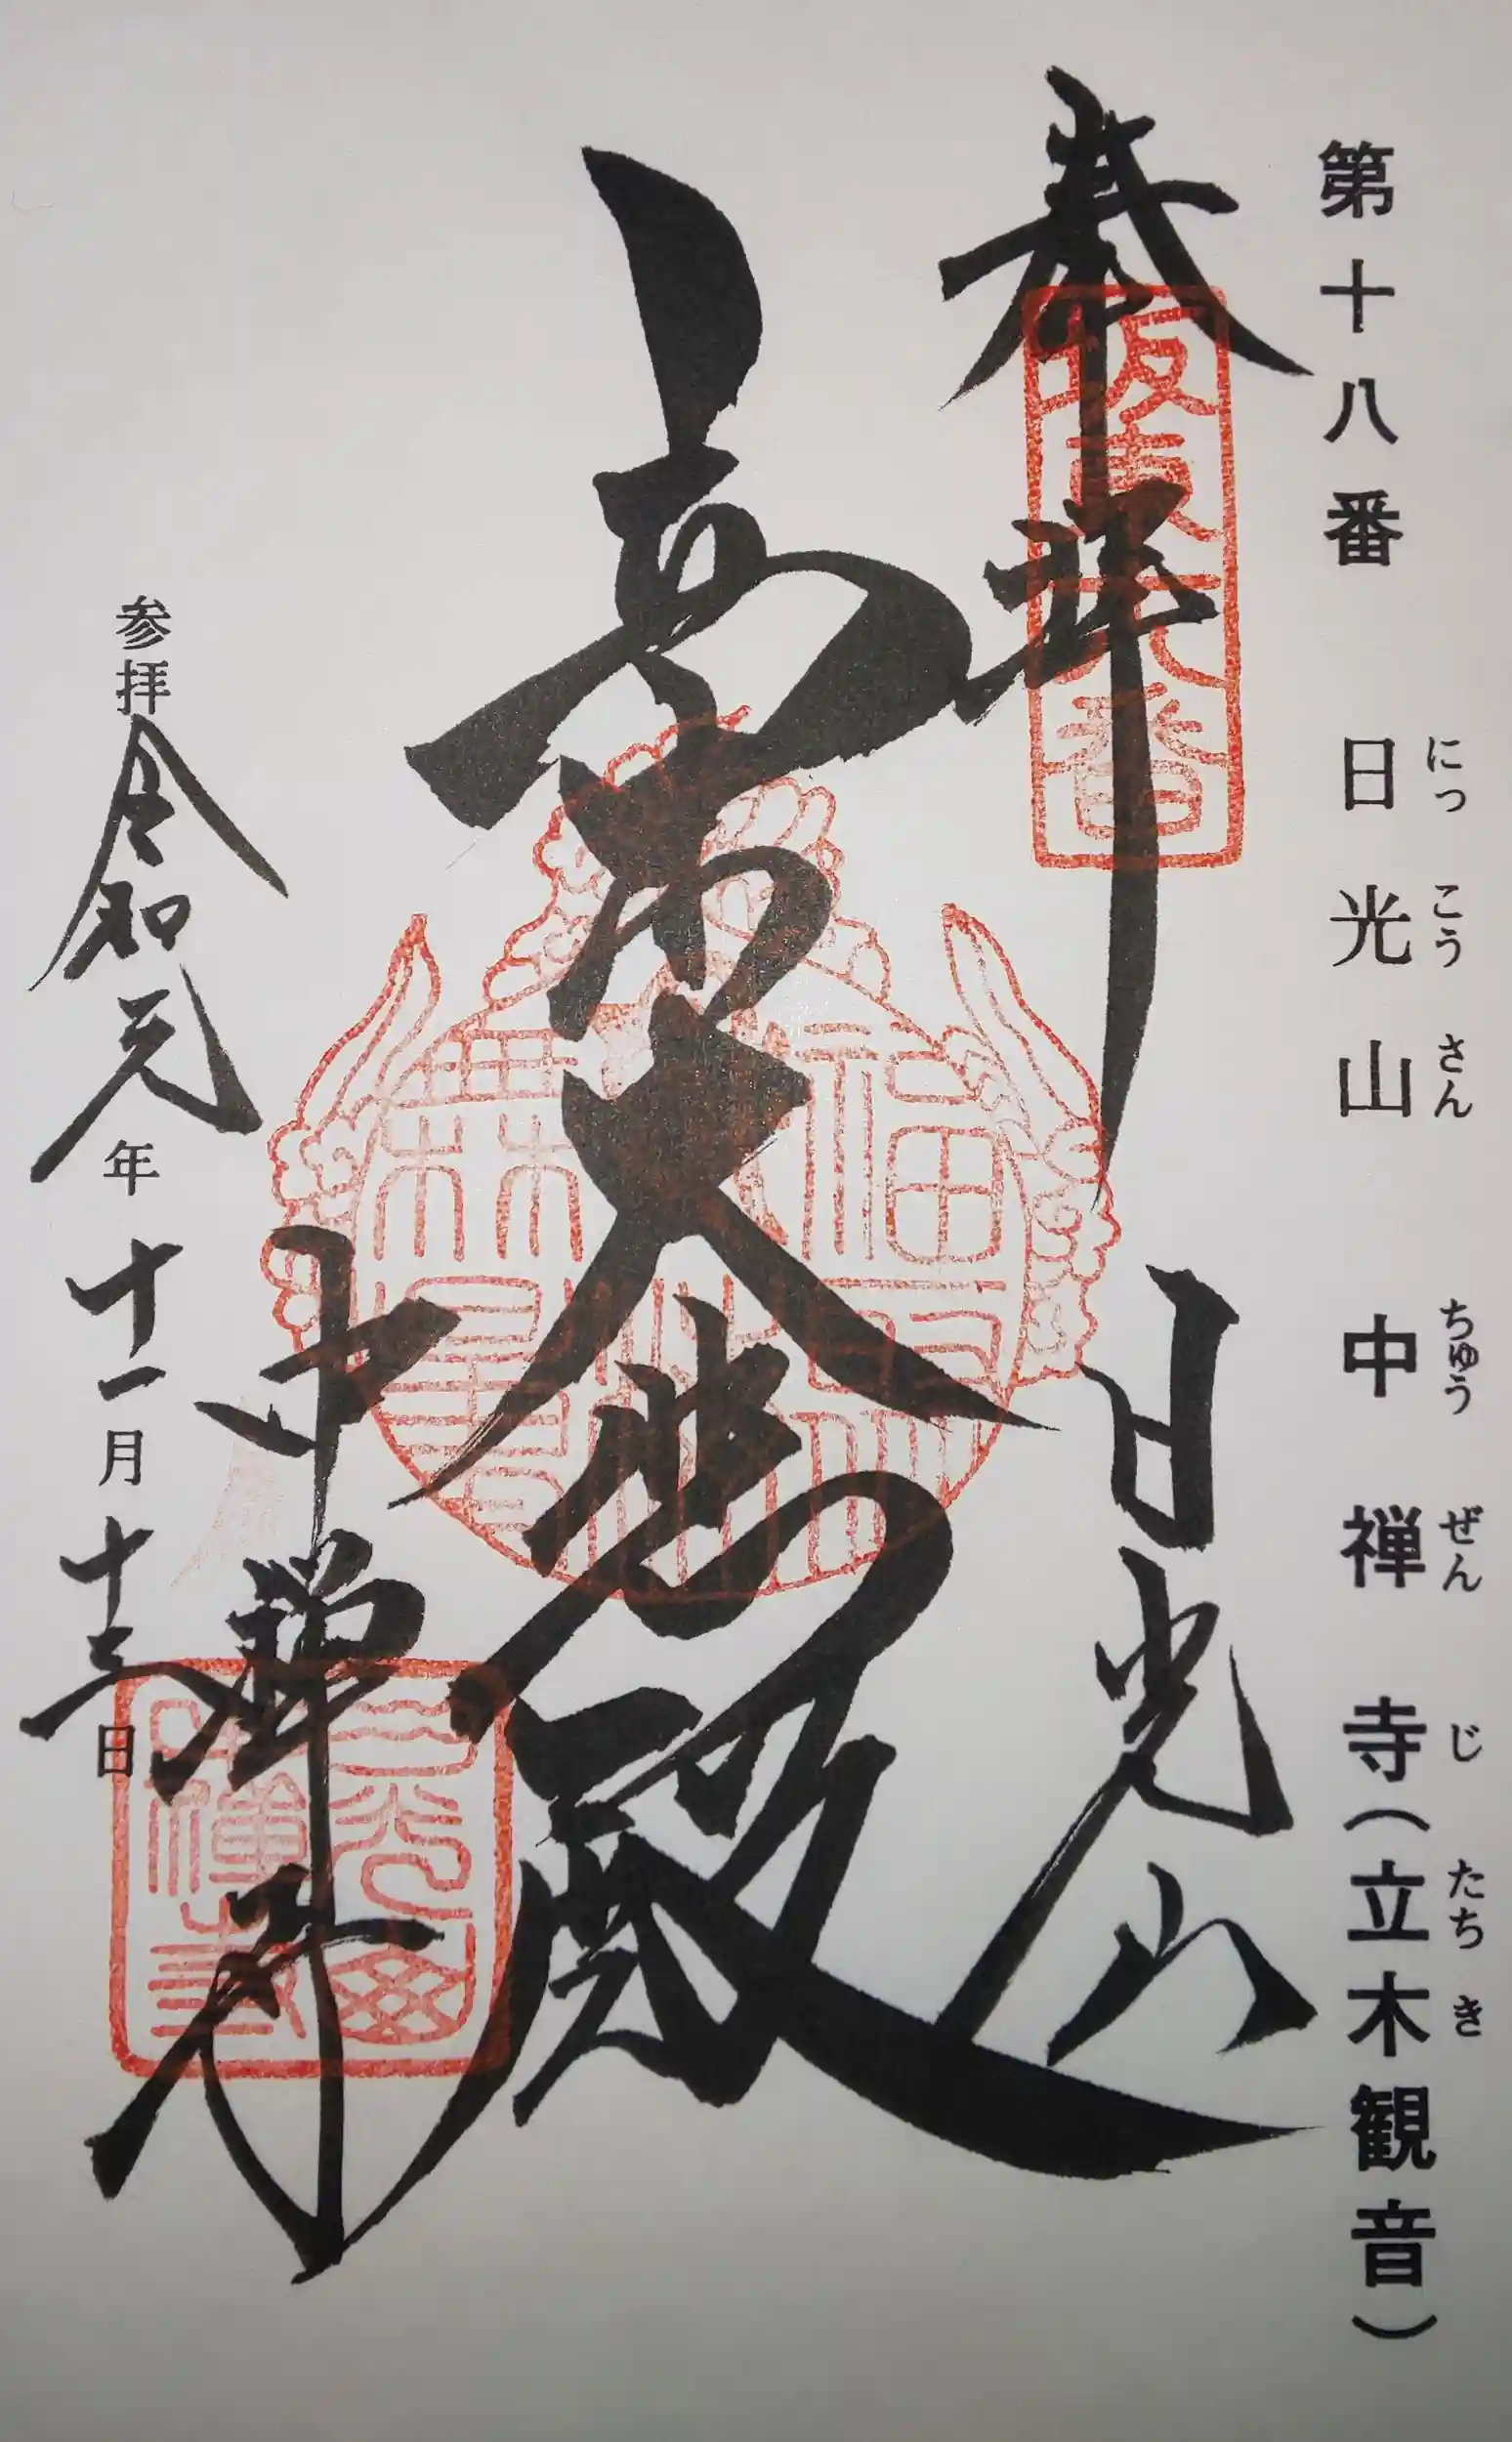 第十八番 日光山 中禅寺(立木観音)
にっ こう さん ちゅう ぜん じ たち き
奉拝 日光山
坂東十八番
立木大悲殿
中禅寺
参拝令和元年十一月十三日